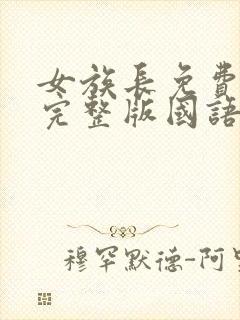 女族長免費
完整版國語
穆罕默德-阿